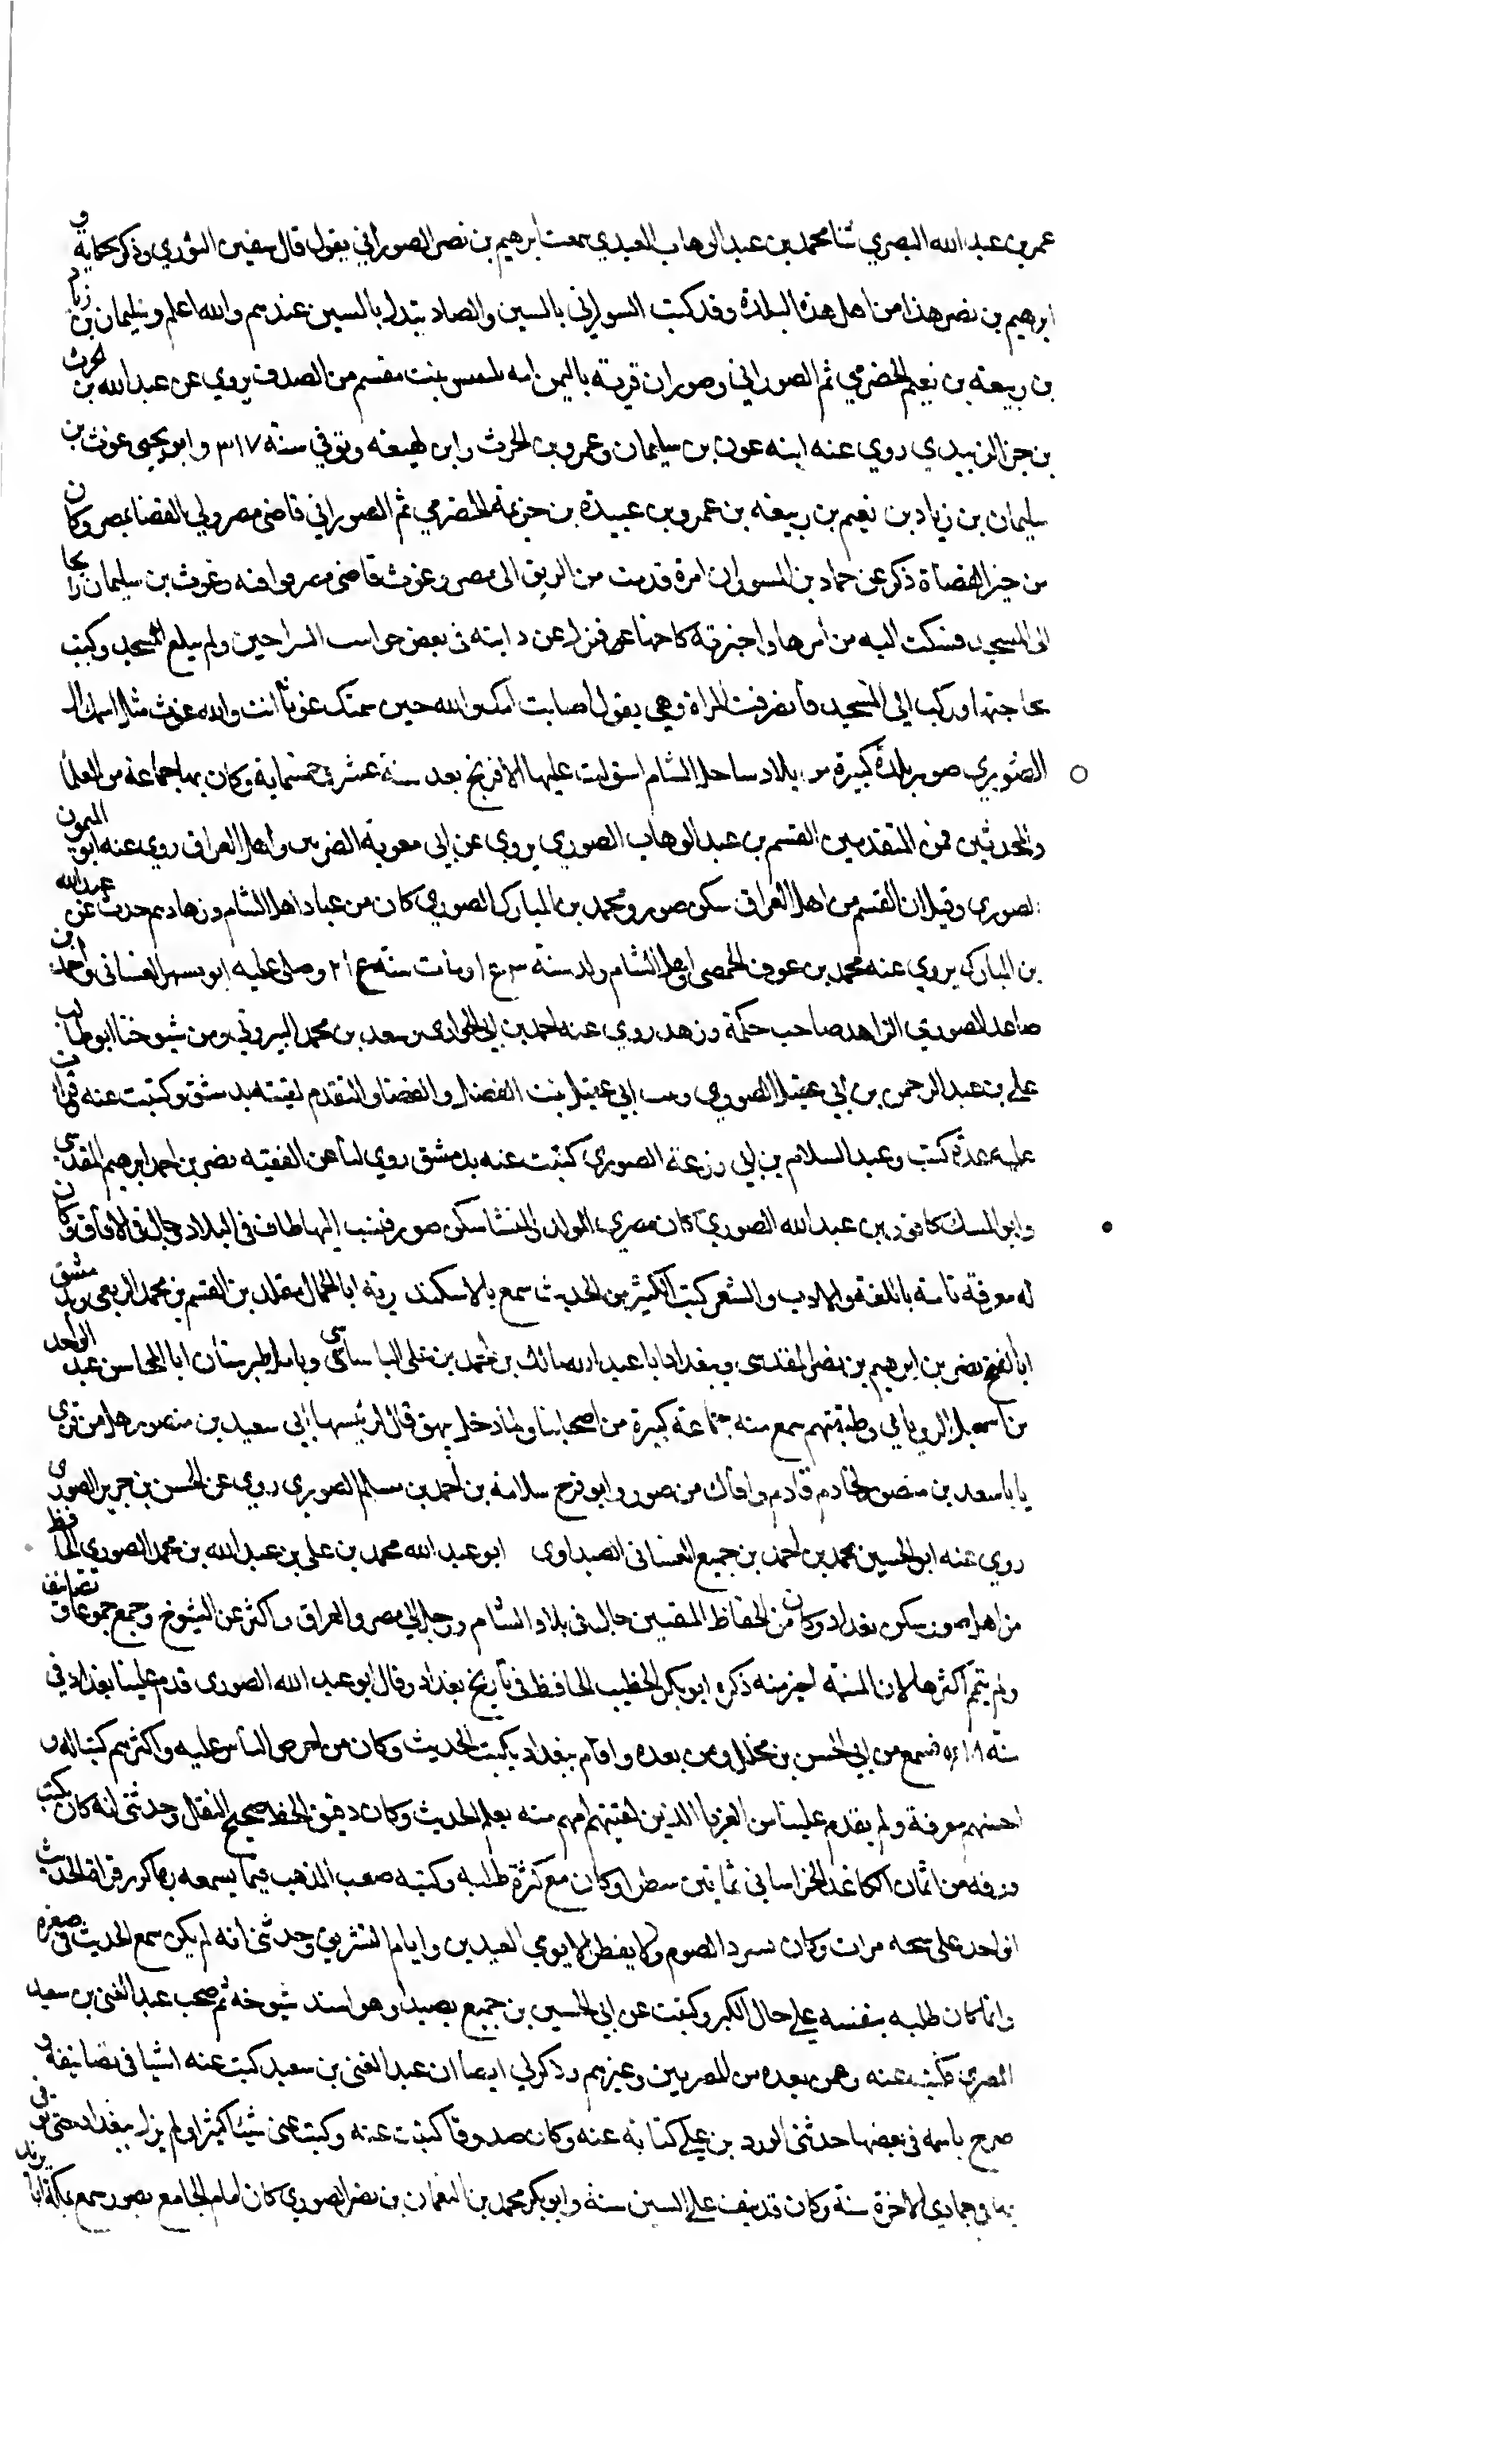 عمر بن عبد الله البصري ثنا محمد بن عبد الوهاب العبدي سمعت ابرهيم بن نصر الصوراني يقول قال سفين الثوري وذكر حكاية و
ابرهيم بن نصر هذا من اهل هذه البلدة وقد كتب السوراني بالسين والصاد يتبدل بالسين عندهم والله اعلم وسليمان بن زياد
بن ربيعة بن نعيم الحضرمي ثم الصوراني وصوران قرية باليمن امه بنت مقسم من الصدف يروي عن عبد الله بن الحرث
بن جز الزبيدي روي عنه ابنه عون بن سليمان وعمرو بن الحرث وابن لهيعه وتوفي سنة ٣١٧ وابو يحيى غوث بن
سليمان بن زياد بن نعيم بن ربيعه بن عمرو بن عبيدة بن جزيمة الحضرمي ثم الصوراني قاضى مصر ولي القضا بمصر وكان
من خير القضاة ذكر عن حماد بن المسور ان امرة قدمت من الريف الى مصر وغوث قاضى مصر فوافته وغوث بن سليمان رايحا
الى المسجد فشكت اليه من امرها واخبرته فنزل عن دابته فى بعض حوانيت السراجين ولم يبلغ المسجد وكتب
بحاجتها وركب الى المسجد فانصرفت المراة وهي يقول اصابت امك والله حين سمتك غوثا انت والله غوث مثل اسمك
الصوري صور بلدة كبيرة من بلاد ساحل الشام استولت عليها الافرنج بعد سنة عشر وخمسماية وكان بها جماعة من العلما
والمحدثين فمن المتقدمين القسم بن عبد الوهاب الصوري يروي عن ابى معوية الضرير واهل العراق روي عنه ابو الميمون
الصوري وقيل ان القسم من اهل العراق سكن صور ومحمد بن المبارك الصوري كان من عباد اهل الشام وزهادهم حدث عن عبد الله
بن المبارك يروي عنه محمد بن عوف الحمصي واهل الشام ولد سنة ومات سنة وصلى عليه ابو مسهر الغسانى واحمد بن
صاعد الصوري الزاهد صاحب حكمة وزهد روي عنه احمد بن ابي الحواري وسعد بن محمد البيروتي ومن شيوخنا ابو طالب
علي بن عبد الرحمن بن ابي عقيل الصوري وبيت ابي عقيل بيت الفضل والقضا والتقدم لقيته بدمشق وكتبت عنه قرات
عليه عدة كتب وعبد السلام بن ابي زرعة الصوري كتبت عنه بدمشق روي لنا عن الفقيه نصر بن احمد ابرهيم المقدسي
وابو المسك كافور بن عبد الله الصوري كان مصري المولد والمنشا سكن صور فنسب اليها طاف فى البلاد وجال فى الافاق وكان
له معرفة تامة باللغة والادب والشعر كتب الكثير من الحديث سمع بالاسكندرية ابا الجمال مقلد بن القسم بن محمد الربعى وبدمشق
ابا الفتح نصر بن ابرهيم بن نصر المقدسى وببغداد ابا عبد الله مالك بن احمد بن على البانياسى وبامل طبرستان ابا المحاسن عبد الواحد
بن اسمعيل الروياني وطبقتهم سمع منه جماعة كبيرة من اصحابنا ولما دخل بيهق قال لرئيسها ابي سعيد بن منصور هل من قرى
يا با سعد بن منصور لخادم قادم وافاك من صور وابو فرج سلامة بن احمد بن مسلم الصوري روي عن الحسن بن جرير الصوري
روي عنه ابو الحسين محمد بن احمد بن جميع الغسانى الصيداوى ابو عبد الله محمد بن على بن عبد الله بن محمد الصوري الحافظ
من اهل صور سكن بغداد وكان من الحفاظ المتقنين جال فى بلاد الشام ورحل الي مصر والعراق واكثر عن الشيوخ وجمع جموعا وتصانيف
ولم يتم اكثرها لان المنيه اخترمته ذكره ابو بكر الخطيب الحافظ فى تاريخ بغداد وقال ابو عبد الله الصورى قدم علينا بغداد في
سنة فسمع من ابي الحسن بن مخلد ومن بعده واقام ببغداد يكتب الحديث وكان من احرص الناس عليه واكثرهم كتبا له و
احسنهم معرفة ولم يقدم علينا من الغربا الذين لقيتهم افهم منه بعلم الحديث وكان دقيق الخط صحيح النقل وحدثنى انه كان يكتب
ورقه من اثمان الكاغد الخراسانى ثمانين سطرا وكان مع كثرة طلبه وكتبه صعب المذهب فيما يسمعه ربما كرر قراة الحديث
الواحد على شيخه مرات وكان يسرد الصوم ولا يفطر الا يومي العيدين وايام التشريق وحدثنى انه لم يكن سمع الحديث فى صغره
وانما كان طلبه بنفسه علي حال الكبر وكتبت عن ابي الحسين بن جميع بصيدا وهو اسند شيوخه ثم صحب عبد الغنى بن سعيد
المصري فكتب عنه وعمن بعده من المصريين وغيرهم وذكر لي ايضا ان عبد الغنى بن سعيد كتب عنه اشيا فى تصانيفه و
صرح باسمه فى بعضها حدثنى الورد بن علي كتابة عنه وكان صدوقا كتبت عنه وكتب عنى شيئا كثيرا ولم يزل ببغداد حتى توفى
بها في جمادي الاخرة سنة وكان قد نيف على الستين سنة وابو بكر محمد بن النعمان بن نصر الصوري كان امام الجامع بصور سمع بمكة ابا يزيد